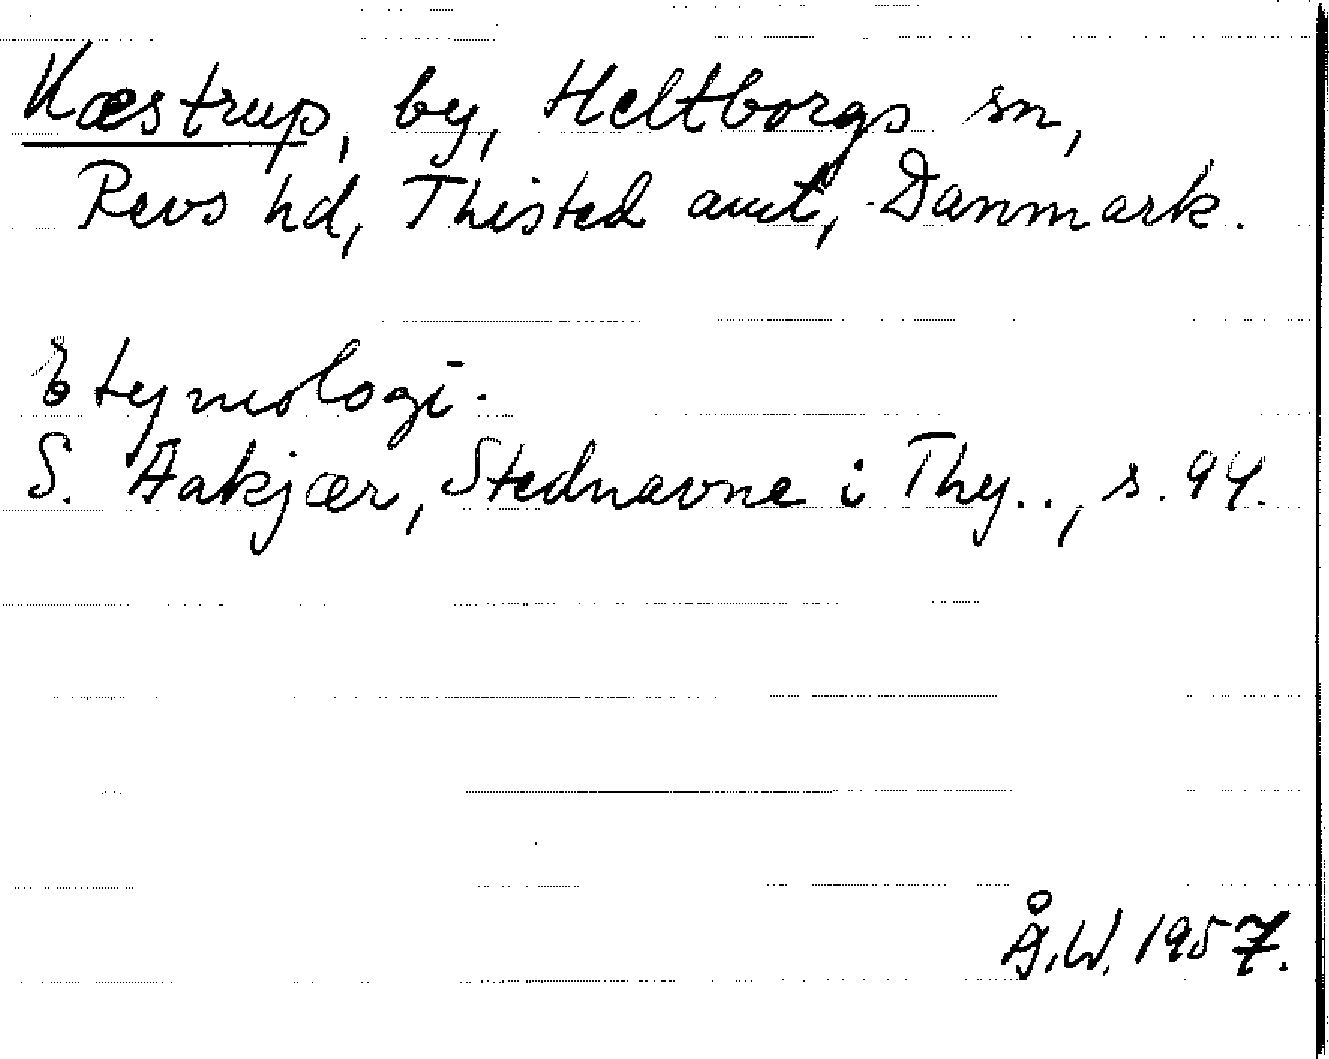 Kæstrup, by, Heltborgs sn,
Revs hd, Thisted amt, Danmark.
Etymologi.
S. Aakjær, Stednavne i Thy.., s. 94.
Å.W. 1957.